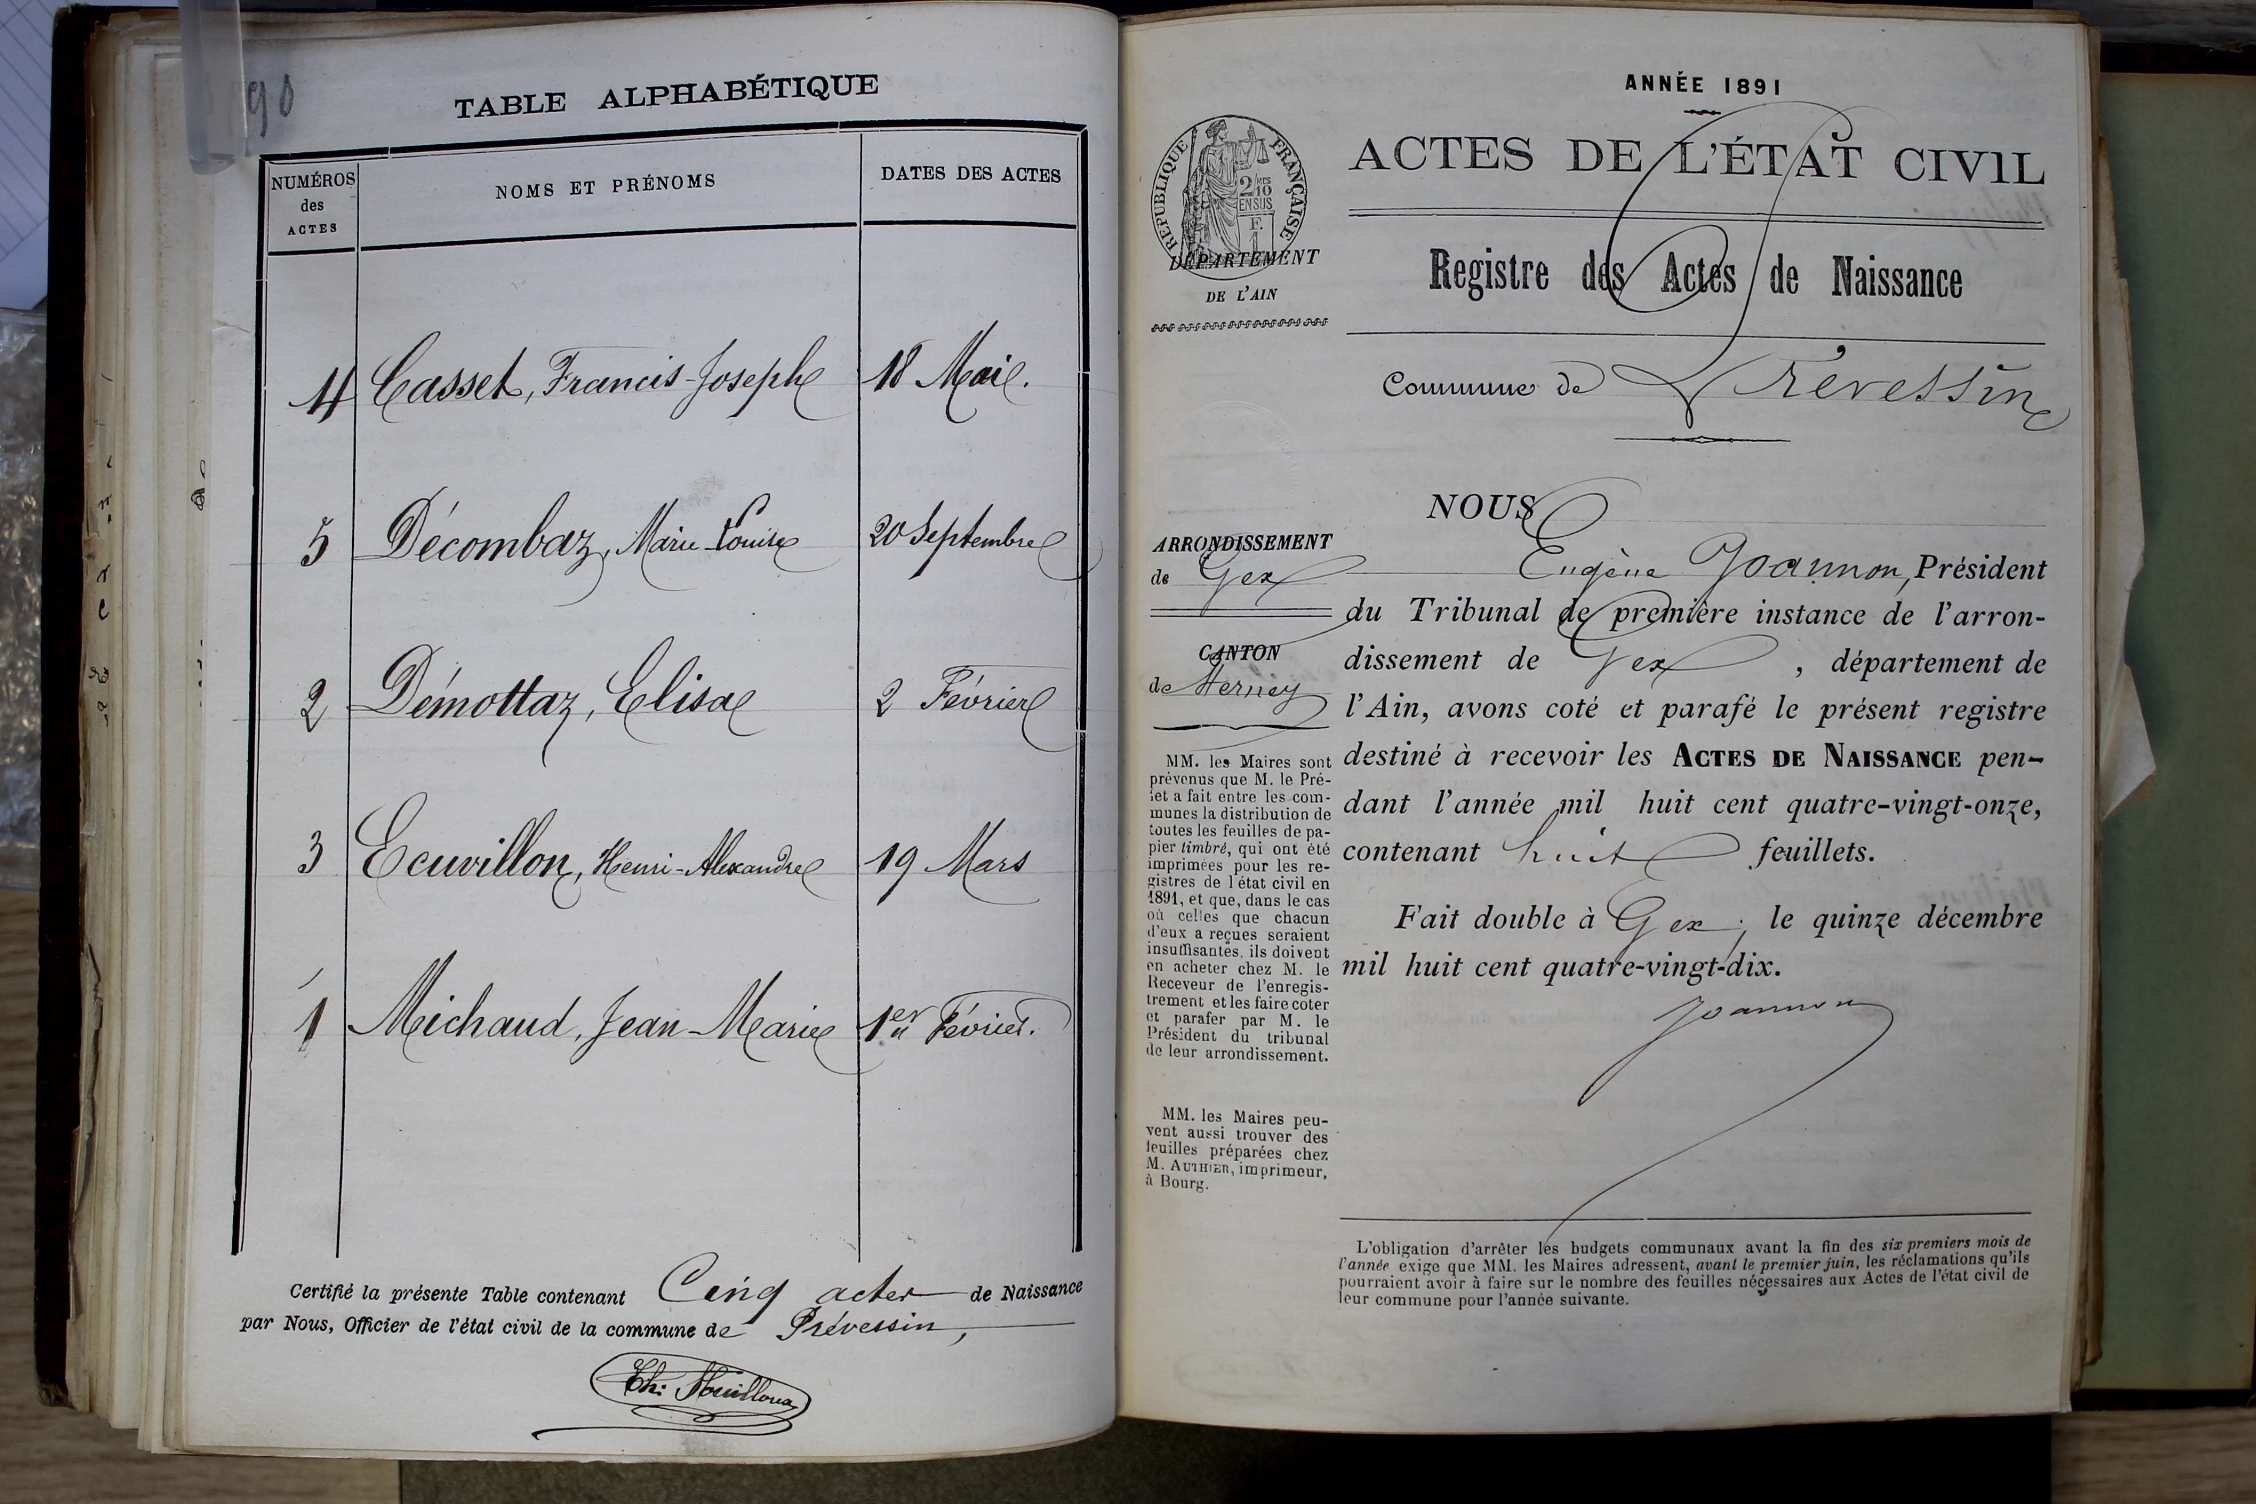 90
TABLE ALPHABÉTIQUE
NUMÉROS
des
ACTES
NOMS ET PRÉNOMS
DATES DES ACTES
4 Casset, Francis-Joseph 18 Mai.
5 Décombaz, Marie Louise 20 Septembre
2 Démottaz, Elisa 2 Février
3 Ecuvillon, Henri-Alexandre 19 Mars
1 Michaud, Jean-Marie 1er Février.
Certifié la présente Table contenant Cinq actes de Naissance
par Nous, Officier de l'état civil de la commune de Prévessin,
ANNÉE 1891
RÉPUBLIQUE FRANÇAISE
2/10
EN SUS
F.
1
ACTES DE L'ÉTAT CIVIL
DÉPARTEMENT
DE L'AIN
Registre des Actes de Naissance
Commune de Prévessin
ARRONDISSEMENT
de Gex
CANTON
de Ferney
MM. les Maires sont
prévenus que M. le Pré-
fet a fait entre les com-
munes la distribution de
toutes les feuilles de pa-
pier timbré, qui ont été
imprimées pour les re-
gistres de l'état civil en
1891, et que, dans le cas
où celles que chacun
d'eux a reçues seraient
insuffisantes, ils doivent
en acheter chez M. le
Receveur de l'enregis-
trement et les faire coter
et parafer par M. le
Président du tribunal
de leur arrondissement.
MM. les Maires peu-
vent aussi trouver des
feuilles préparées chez
M. AUTHIER, imprimeur,
à Bourg.
NOUS
Eugène Joannon, Président
du Tribunal de première instance de l'arron-
dissement de Gex, département de
l'Ain, avons coté et parafé le présent registre
destiné à recevoir les ACTES DE NAISSANCE pen-
dant l'année mil huit cent quatre-vingt-onze,
contenant huit feuillets.
Fait double à Gex, le quinze décembre
mil huit cent quatre-vingt-dix.
Joannon
L'obligation d'arrêter les budgets communaux avant la fin des six premiers mois de
l'année exige que MM. les Maires adressent, avant le premier juin, les réclamations qu'ils
pourraient avoir à faire sur le nombre des feuilles nécessaires aux Actes de l'état civil de
leur commune pour l'année suivante.